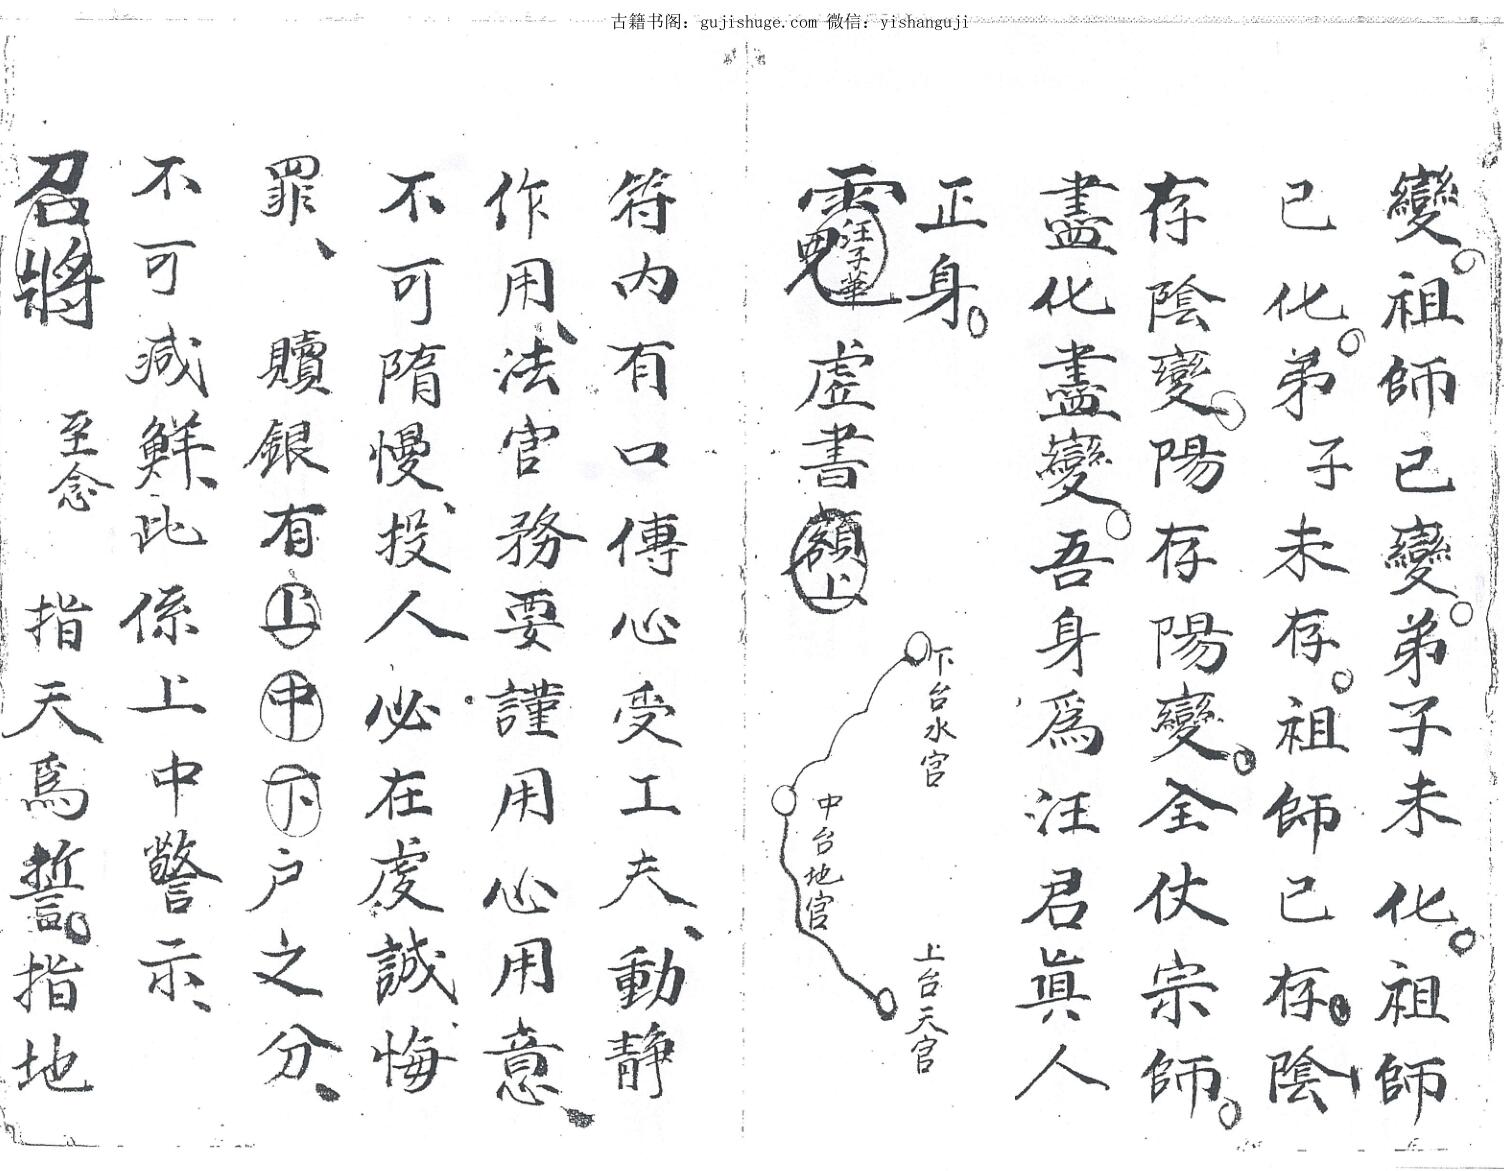 古籍书阁：gujishuge.com 微信：yishanguji
變。祖師已變。弟子未化。祖師
已化。弟子未存。祖師已存。陰
存陰變。陽存陽變。全仗宗師。
盡化盡變。吾身為汪君真人
正身。
汪子華
虛書
額上
下台水官
中台地官
上台天官
符內有口傳心受工夫、動静
作用、法官務要謹用心用意、
不可隋慢、投人必在虔誠、悔
罪、 贖銀有上中下户之分、
不可減鮮、此係上中警示、
召將 至念 指天爲誓。指地